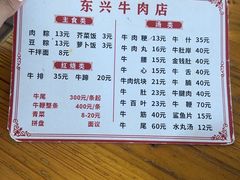 东兴牛肉店
主食类
肉粽 13元 芥菜饭 3元
豆粽 13元 萝卜饭 3元
干拌面 8元
红烧类
牛排 35元 牛蹄 20元
牛尾 300元/条起
牛鞭整条 400元/条
青菜 8-20元
拼盘 面议
汤类
牛肉粳 13元 牛什 35元
牛肉丸 16元 牛肚岸 40元
牛腩 12元 金钱肚 40元
牛心 15元 牛舌 40元
牛肉炕块 21元 牛脑 40元
牛肚 21元 牛腱肉 40元
牛百叶 23元 牛鞭 70元
牛筋 45元 鲨鱼片 15元
牛尾 60元 水丸汤 12元